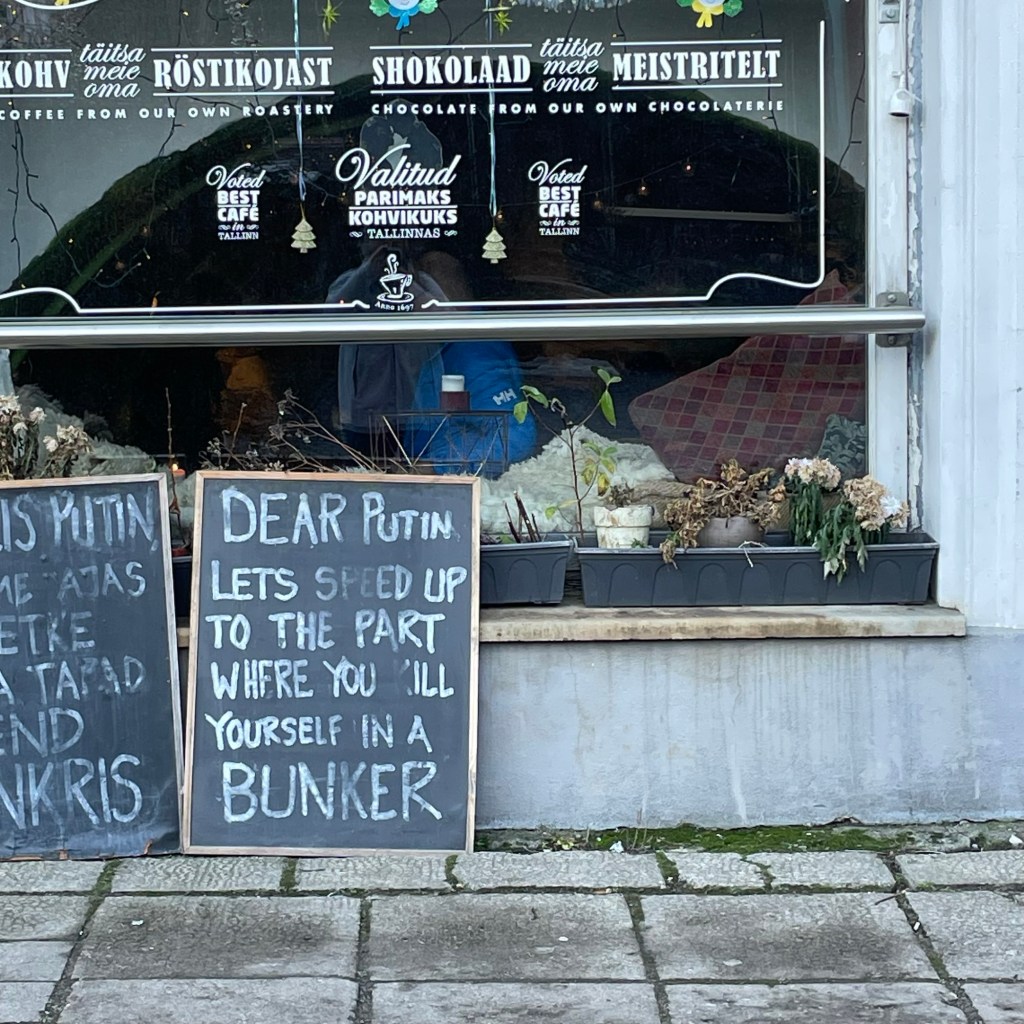 KOHV täitsa meie oma RÖSTIKOJAST
COFFEE FROM OUR OWN ROASTERY
SHOKOLAAD täitsa meie oma MEISTRITELT
CHOCOLATE FROM OUR OWN CHOCOLATERIE
Voted
BEST
CAFÉ
in
TALLINN
Valitud
PARIMAKS
KOHVIKUKS
TALLINNAS
Voted
BEST
CAFÉ
in
TALLINN
Anno 1697
MH
IS PUTIN,
ME AJAS
ETKE
A TAPAD
END
NKRIS
DEAR PUTIN
LETS SPEED UP
TO THE PART
WHERE YOU KILL
YOURSELF IN A
BUNKER